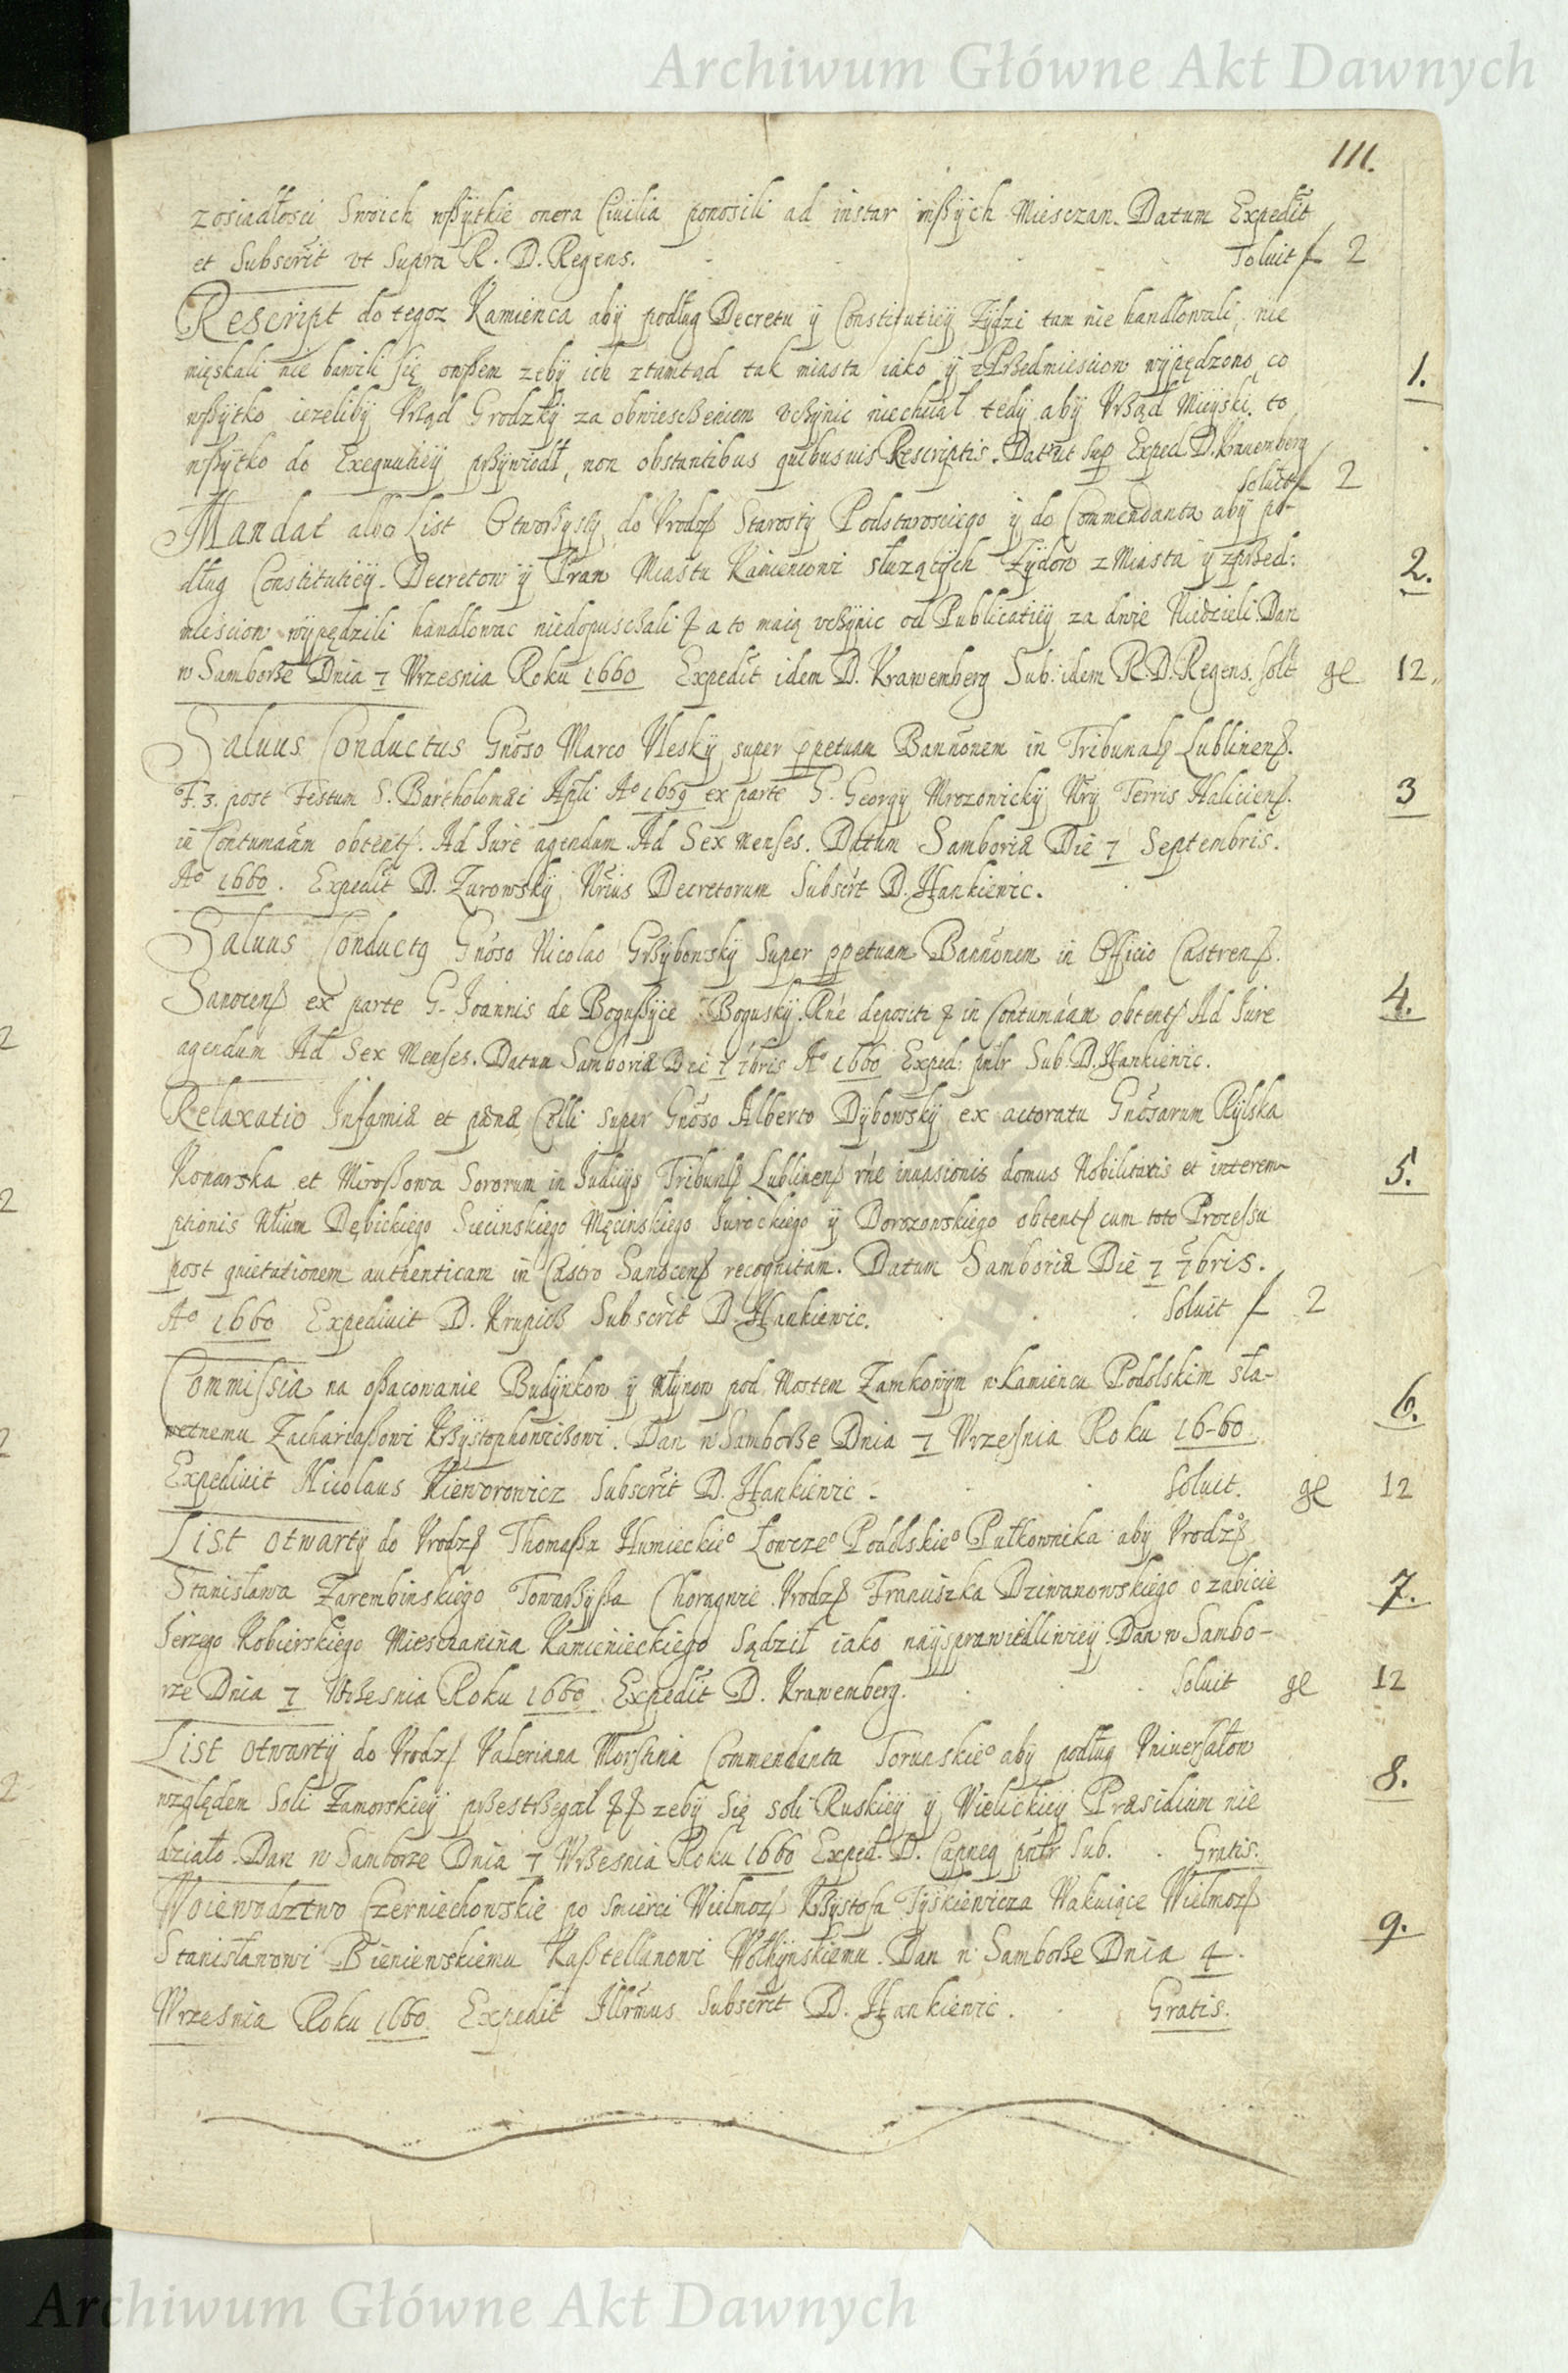 Archiwum Główne Akt Dawnych
111.
zosiadłosci Swoich wßytkie onera Ciuilia ponosili ad instar inßych Miesczan. Datum Expedit
et Subscrit vt Supra R. D. Regens. Soluit f 2
Rescript do tegoz Kamienca aby podług Decretu y Constitutiey Zydzi tam nie handlowali, nie
mięskali nie bawili się owßem zeby ich ztamtąd tak miasta iako y zPrßedmiescion wypędzono, co 1.
wßytko iezeliby Vrząd Grodzky za obwiesczeniem vczynic niechciał tedy aby Vrßąd Mieyski to
wßytko do Exequutiey prßywiodł, non obstantibus quibusuis Rescriptis. Dat ut Sup Exped D. Krauemberg
Soluit f 2
Mandat albo List Otworßysty do Vrodz Starosty Podstarosciego y do Commendanta aby po-
dług Constitutiey Decretow y Praw Miastu Kamiencowi słuząćych Zydow z Miasta y zprßed: 2.
miescion wypędzili handlowac niedopusczali & a to maią vczynic od Publicatiey za dwie Niedzieli. Dan
w Samborße Dnia 7 Wrzesnia Roku 1660 Expedit idem D. Krawemberg Sub. idem R. D. Regens. solt ge 12.
Saluus Conductus Gnoso Marco Vlesky super ppetuam Bannonem in Tribunali Lublinenß.
F. 3. post Festum S. Bartholomæi Apli Ao 1659 ex parte G. Georgy Mrozowicky Nry Terris Halicienß. 3
in Contumaam obtent. Ad Jure agendum Ad Sex Menses. Datum Samboriæ Die 7 Septembris.
Ao 1660. Expedit D. Zurowsky Nrius Decretorum Subscrit D. Hankiewic.
Saluus Conductq Gnoso Nicolao Grßybowsky Super ppetuam Bannonem in Officio Castrenß.
Sanocenß ex parte G. Joannis de Bogußyce Bogusky. Rne depositi & in Contumaam obtent Ad Jure 4.
agendum Ad Sex Menses. Datum Samboriæ Die 7 7bris Ao 1660 Exped: pntr Sub. D. Hankiewic.
Relaxatio Infamiæ et pænæ Colli super Gnoso Alberto Dybowsky ex actoratu Gnosarum Rylska
Konarska et Miroßowa Sororum in Judicys Tribunß Lublinenß rne inuasionis domus Nobilitatis et interem- 5.
ptionis Nlium Dębickiego Siecinskiego Męcinskiego Jurockiego y Dorozowskiego obtent cum toto Processu
post quietationem authenticam in Castro Sanocenß recognitam. Datum Samboriæ Die 7 7bris.
Ao 1660 Expediuit D. Krupicß Subscrit D. Hankiewic. Soluit f 2
Commissia na oßacowanie Budynkow y Młynow pod Mostem Zamkowym w Kamiencu Podolskim sła- 6.
wetnemu Zachariaßowi Krßysztophowiczowi. Dan w Samborße Dnia 7 Wrzesnia Roku 1660
Expediuit Nicolaus Kieworowicz Subscrit D. Hankiewic - Soluit. ge 12
List otwarty do Vrodz Thomaßa Humieckieo Łowczeo Podolskieo Pułkownika aby Vrodzo
Stanisława Zarembinskiego Towarßyßa Chorągwie Vrodz Franciszka Dziwanowskiego o zabicie 7.
Jerzego Kobierskiego Miesczanina Kamienieckiego Sądził iako nayspravidliwiey Dan w Sambo-
rze Dnia 7 Wrßesnia Roku 1660 Expedit D. Krawemberg. Soluit ge 12
List otwarty do Vrodz Valeriana Morstina Commendanta Torunskieo aby podług Vniuersałow
względem Soli Zamorskiey prßestrßegał && zeby się soli Ruskiey y Wielickiey Præsidium nie 8.
działo. Dan w Samborze Dnia 7 Wrßesnia Roku 1660 Exped. D. pntr Sub. Gratis.
Woiewodztwo Czerniechowskie po smierci Wielmoz Krßysztofa Tyskiewicza Wakuiące Wielmoz
Stanisławowi Bieniewskiemu Kaßtellanowi Wołhynskiemu. Dan w Samborße Dnia 4. 9.
Wrzesnia Roku 1660. Expedit Illrmus Subscrit D. Hankiewic. Gratis.
Archiwum Główne Akt Dawnych